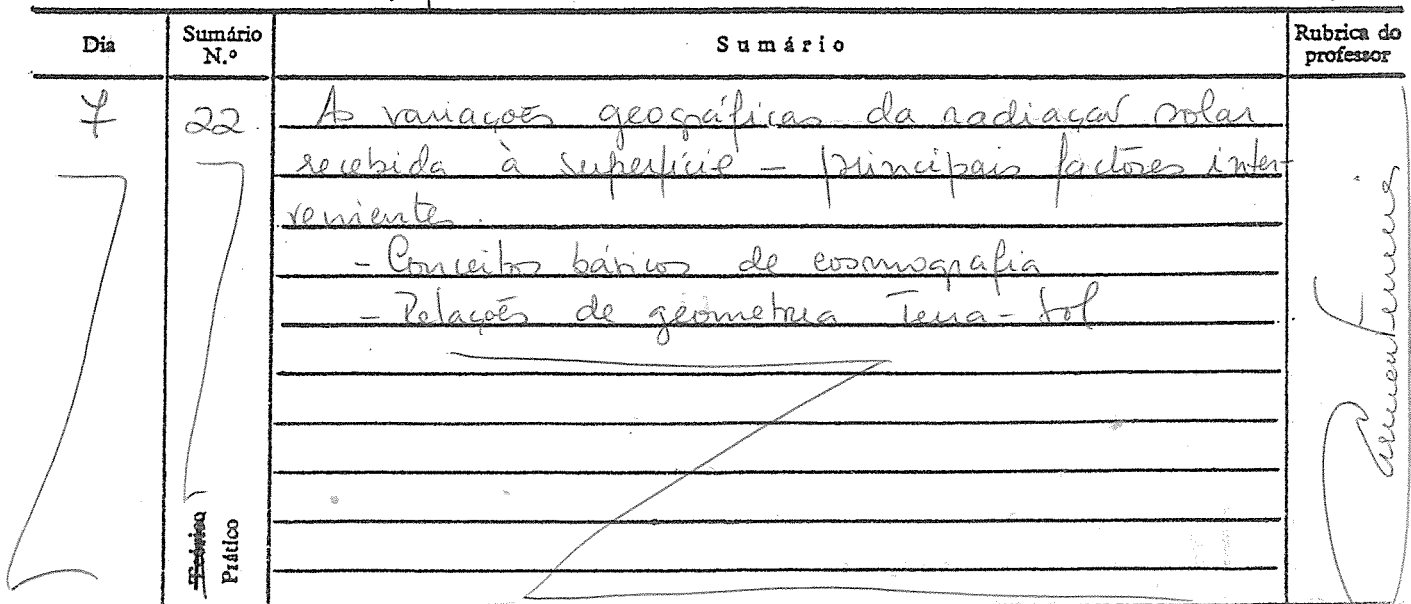 Dia Sumário N.º Sumário Rubrica do professor
7 22. As variações geográficas da radiação solar
recebida à superfície – principais factores inter-
venientes.
- Conceitos básicos de cosmografia
- Relações de geometria Terra-Sol
Teórico
Prático